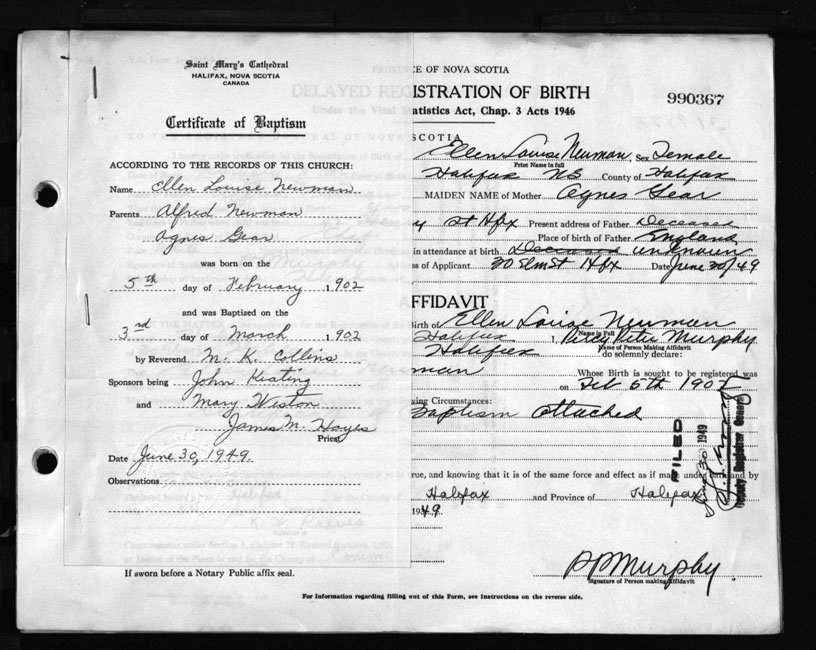 Saint Mary's Cathedral
HALIFAX, NOVA SCOTIA
CANADA
Certificate of Baptism
ACCORDING TO THE RECORDS OF THIS CHURCH:
Name Ellen Louise Newman
Parents Alfred Newman
Agnes Gear
was born on the
5th day of February 1902
and was Baptized on the
3rd day of March 1902
by Reverend M. K. Collins
Sponsors being John Keating
and Mary Weston
James M. Hayes
Priest
Date June 30, 1949.
Observations
If sworn before a Notary Public affix seal.
PROVINCE OF NOVA SCOTIA
DELAYED REGISTRATION OF BIRTH
990367
Under the Vital Statistics Act, Chap. 3 Acts 1946
SCOTIA
Ellen Louise Newman Sex Female
Print Name in full
Halifax NS County of Halifax
MAIDEN NAME of Mother Agnes Gear
St Hfx Present address of Father Deceased
Place of birth of Father England
in attendance at birth Deceased unknown
s of Applicant 20 Elm St Hfx Date June 30/49
FFIDAVIT
Birth of Ellen Louise Newman
Name in Full
Halifax I, Percy Peter Murphy
Name of Person Making Affidavit
Halifax do solemnly declare:
man Whose Birth is sought to be registered was
on Feb 5th 1902
ving Circumstances:
Baptism attached
FILED
1949
Deputy Registrar General
rue, and knowing that it is of the same force and effect as if made under oath and by
Halifax and Province of Halifax
1949
P P Murphy
Signature of Person making Affidavit
For Information regarding filling out of this Form, see Instructions on the reverse side.